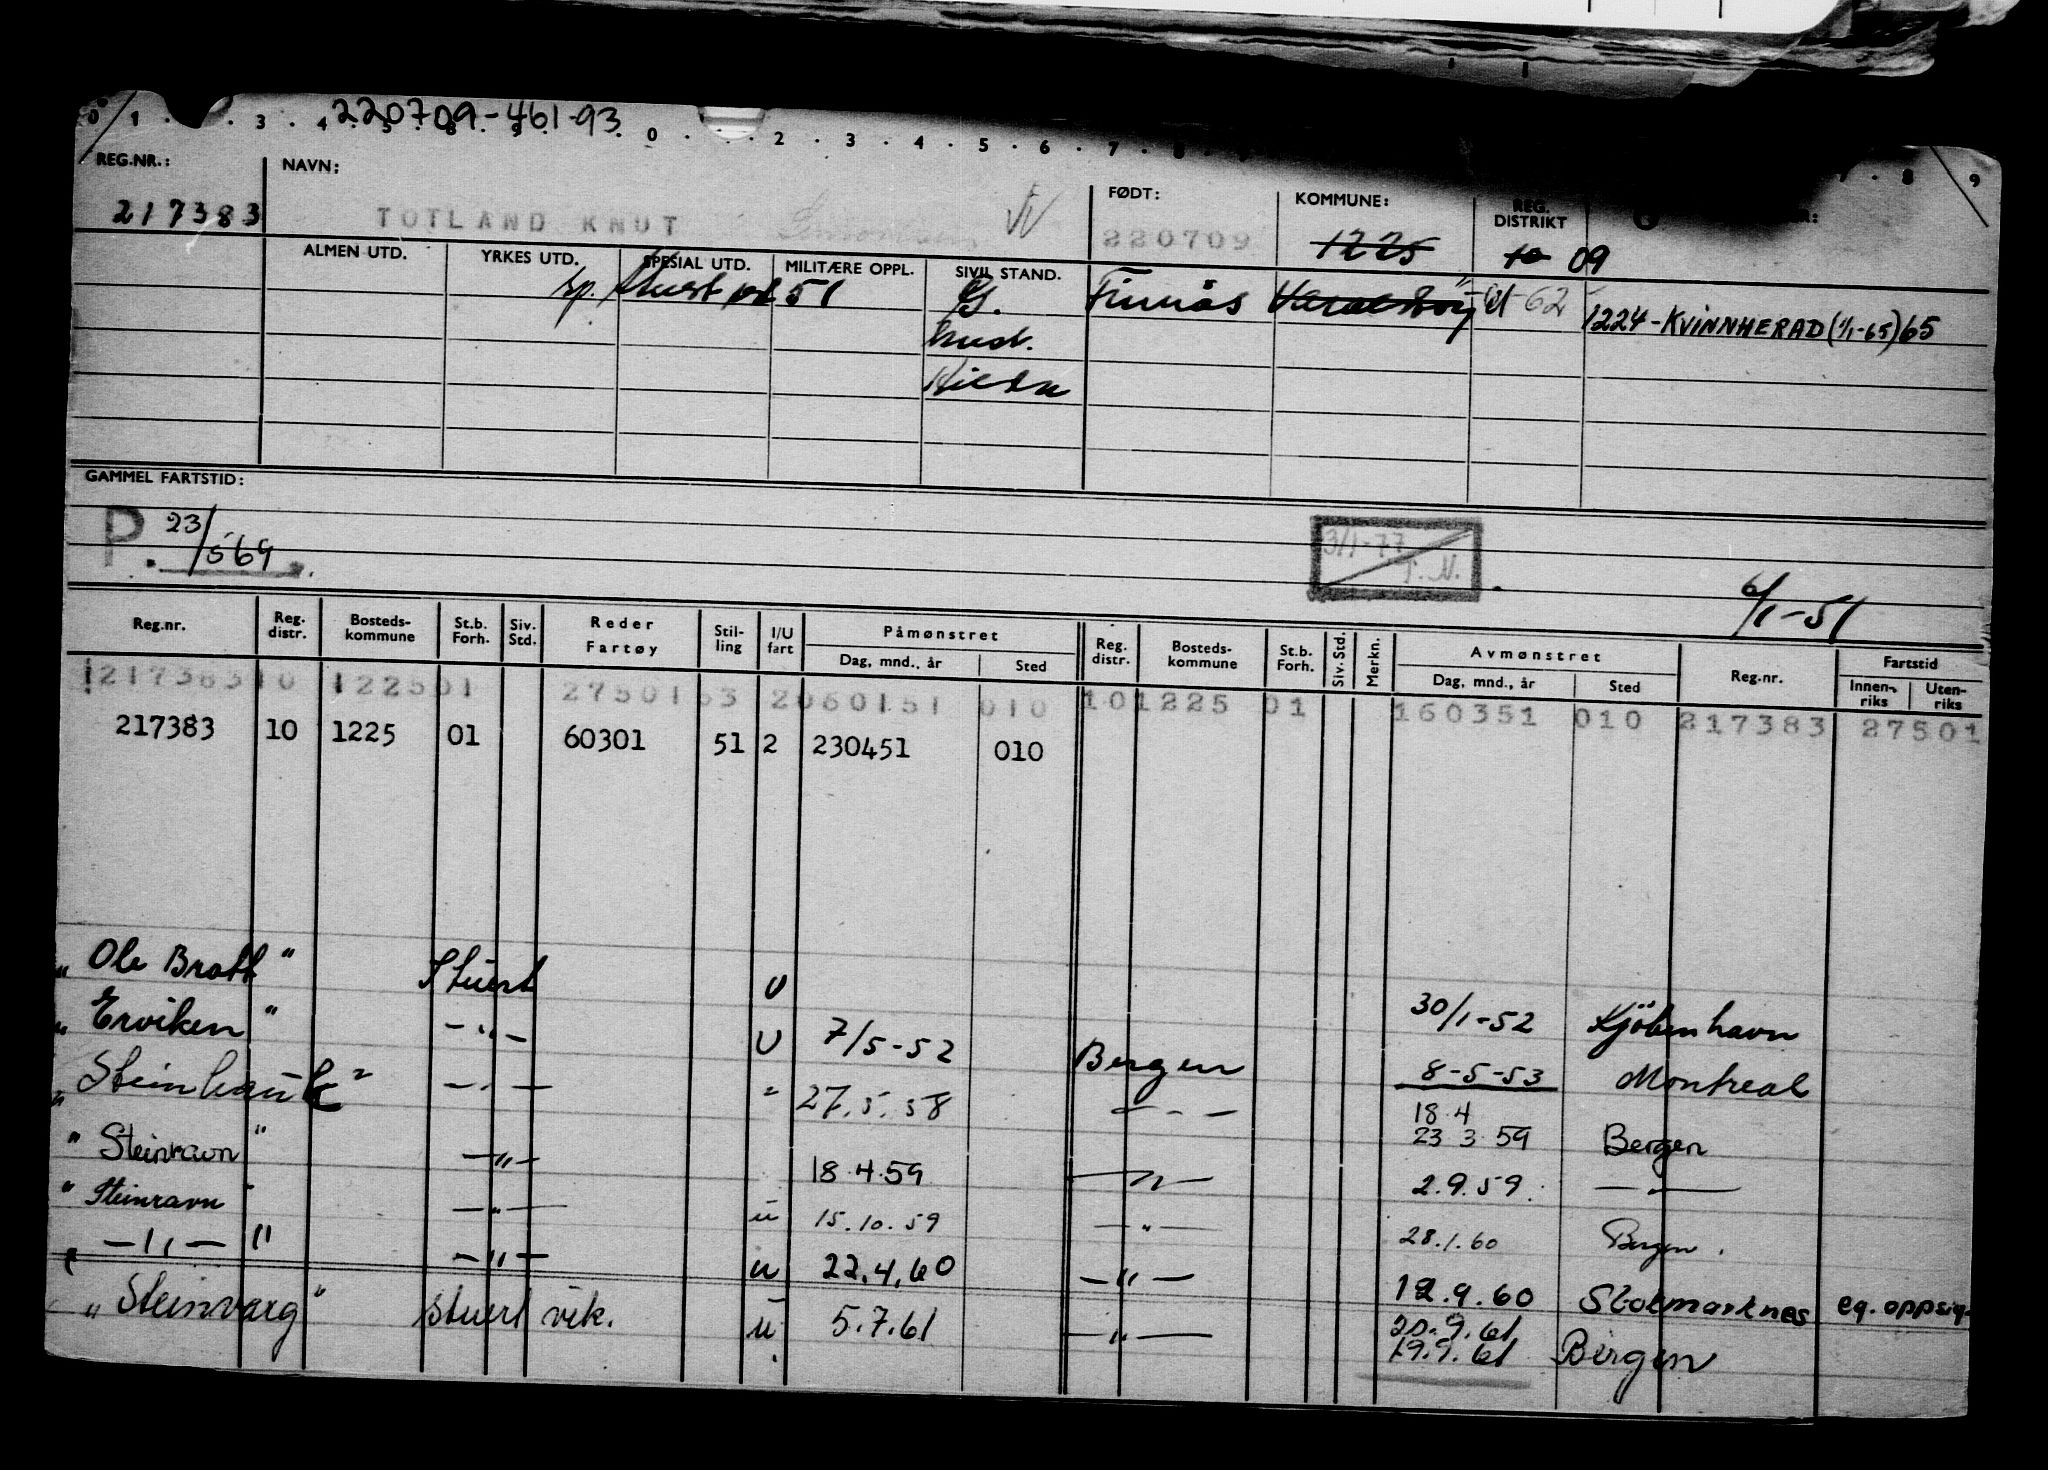 220709-461-93
0 1 . . 3 . 4 . 5 . 8 . 9 . 0 . . . 2 . 3 . 4 . 5 . 6 . 7 . 8 . 9 7 . 8 9
REG.NR.: NAVN: FØDT: KOMMUNE: REG. DISTRIKT
217383 TOTLAND KNUT W 220709 1225 10 09
ALMEN UTD. YRKES UTD. SPESIAL UTD. MILITÆRE OPPL. SIVIL STAND.
sp. 51 G. Finnås 62 1224-KVINNHERAD (1/1-65) 65
GAMMEL FARTSTID:
P. 23/5 69 3/1-77 T.N.
6/1-51
Reg.nr. Reg. distr. Bosteds-kommune St.b. Forh. Siv. Std. Reder Fartøy Stil-ling I/U fart Påmønstret Reg. distr. Bosteds-kommune St.b. Forh. Siv. Std. Merkn. Avmønstret Reg.nr. Fartstid
Dag, mnd., år Sted Dag, mnd., år Sted Innen-riks Uten-riks
1217383 10 122501 2750153 2060151 010 101225 01 160351 010 217383 27501
217383 10 1225 01 60301 51 2 230451 010
" Ole Bratt " Stuert U 30/1-52 Kjöbenhavn
" Erviken " -"- U 7/5-52 Bergen 8-5-53 Montreal
" Steinhauk " -"- " 27.5.58 -"- 18 4
23 3 59 Bergen
" Steinravn " -"- 18.4.59 -"- 2.9.59. -"-
" Steinravn " -"- u 15.10.59 -"- 28.1.60 Bergen.
" -"- " -"- u 22.4.60 -"- 12.9.60 Stokmarknes eg. oppsig.
" Steinvarg " stuert vik. u 5.7.61 -"- 20.9.61
19.9.61 Bergen